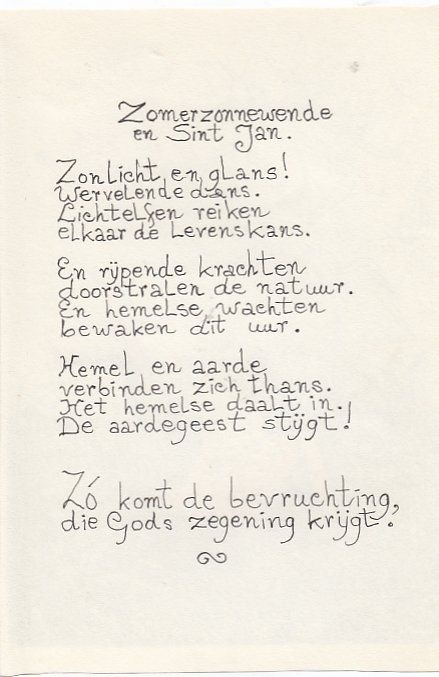 Zomerzonnewende
en Sint Jan.
Zonlicht en glans!
Wervelende dans.
Lichtelfen reiken
elkaar de Levenskans.
En rijpende krachten
doorstralen de natuur.
En hemelse wachten
bewaken dit uur.
Hemel en aarde
verbinden zich thans.
Het hemelse daalt in.
De aardegeest stijgt!
Zó komt de bevruchting,
die Gods zegening krijgt.